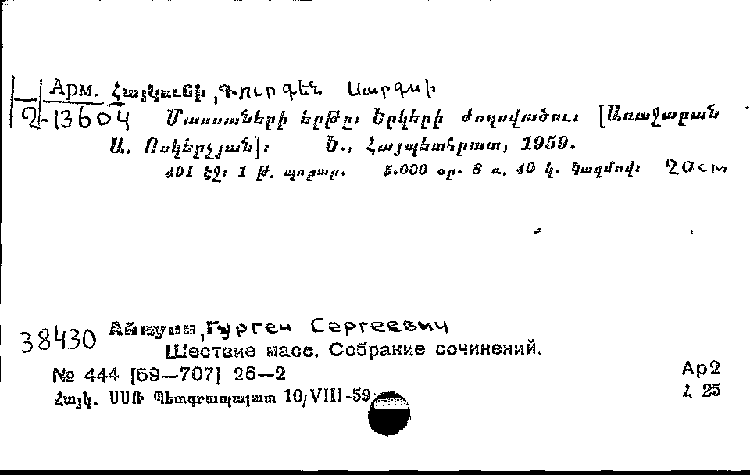 Арм. Հայկունի, Գուրգեն Սարգսի
2-13604 Մասսաների երթը։ Երկերի ժողովածու։ [Առաջաբան
Ա. Ոսկերչյան]։ Ե., Հայպետհրատ, 1959.
401 էջ։ 1 թ. պորտր. 5.000 օր. 8 ռ. 40 կ. Կազմով։ 20см
38430 Айкуни, Гурген Сергеевич
Шествие масс. Собрание сочинений.
№ 444 [59—707] 26—2 Ар2
Հայկ. ՍՍՌ Պետգրապալատ 10/VIII-59 Հ 25